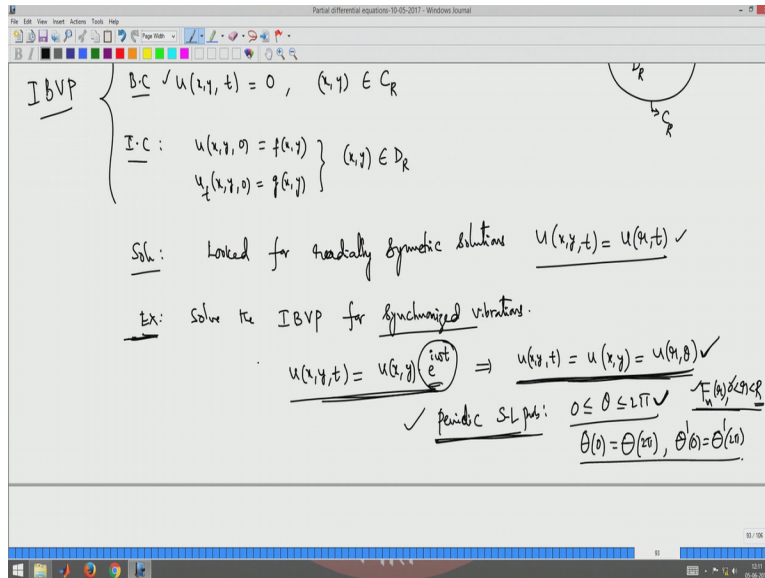 Partial differential equations-10-05-2017 - Windows Journal
File Edit View Insert Actions Tools Help
Page Width
B I
D_R
C_R
IBVP
B.C ✓ u(x,y,t) = 0, (x,y) ∈ C_R
I.C : u(x,y,0) = f(x,y)
u_t(x,y,0) = g(x,y) } (x,y) ∈ D_R
Soln: Looked for readially symetric solutions u(x,y,t) = u(r,t) ✓
Ex: Solve the IBVP for synchronized vibrations.
u(x,y,t) = u(x,y) e^{iωt} ⇒ u(x,y,t) = u(x,y) = u(r,θ) ✓
✓ periodic S-L prob: 0 ≤ θ ≤ 2π ✓
Θ(0) = Θ(2π), Θ'(0) = Θ'(2π)
93 / 106
93
12:11